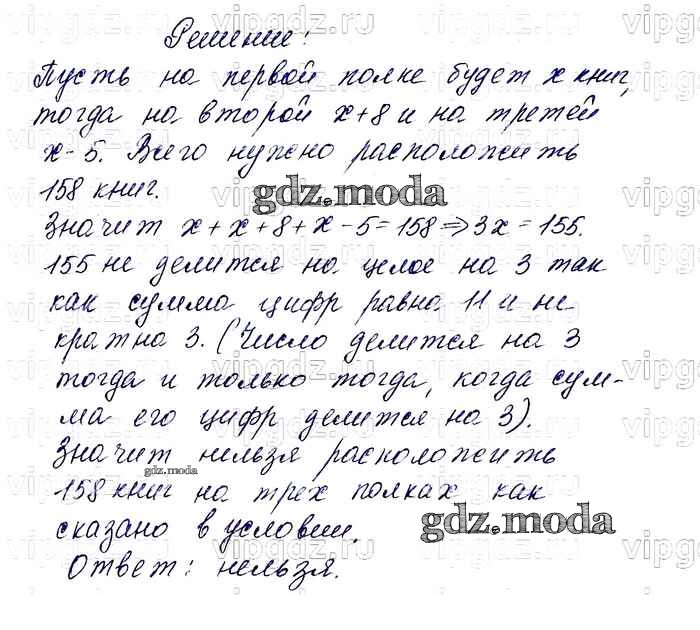 Решение:
Пусть на первой полке будет x книг,
тогда на второй x+8 и на третей
x-5. Всего нужно расположить
158 книг.
gdz.moda
Значит x+x+8+x-5=158=>3x=155.
155 не делится на целое на 3 так
как сумма цифр равна 11 и не
кратна 3. (Число делится на 3
тогда и только тогда, когда сум-
ма его цифр делится на 3).
Значит нельзя расположить
gdz.moda
158 книг на трех полках как
сказано в условии.
gdz.moda
Ответ: нельзя.